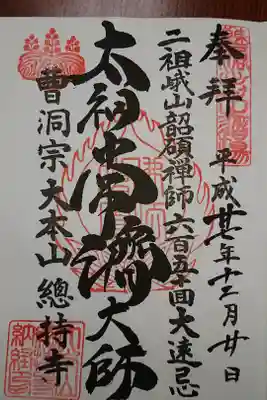 奉拝 平成廿七年十二月廿日
二祖峨山韶碩禅師六百五十回大遠忌
太祖常濟大師
曹洞宗大本山 總持寺